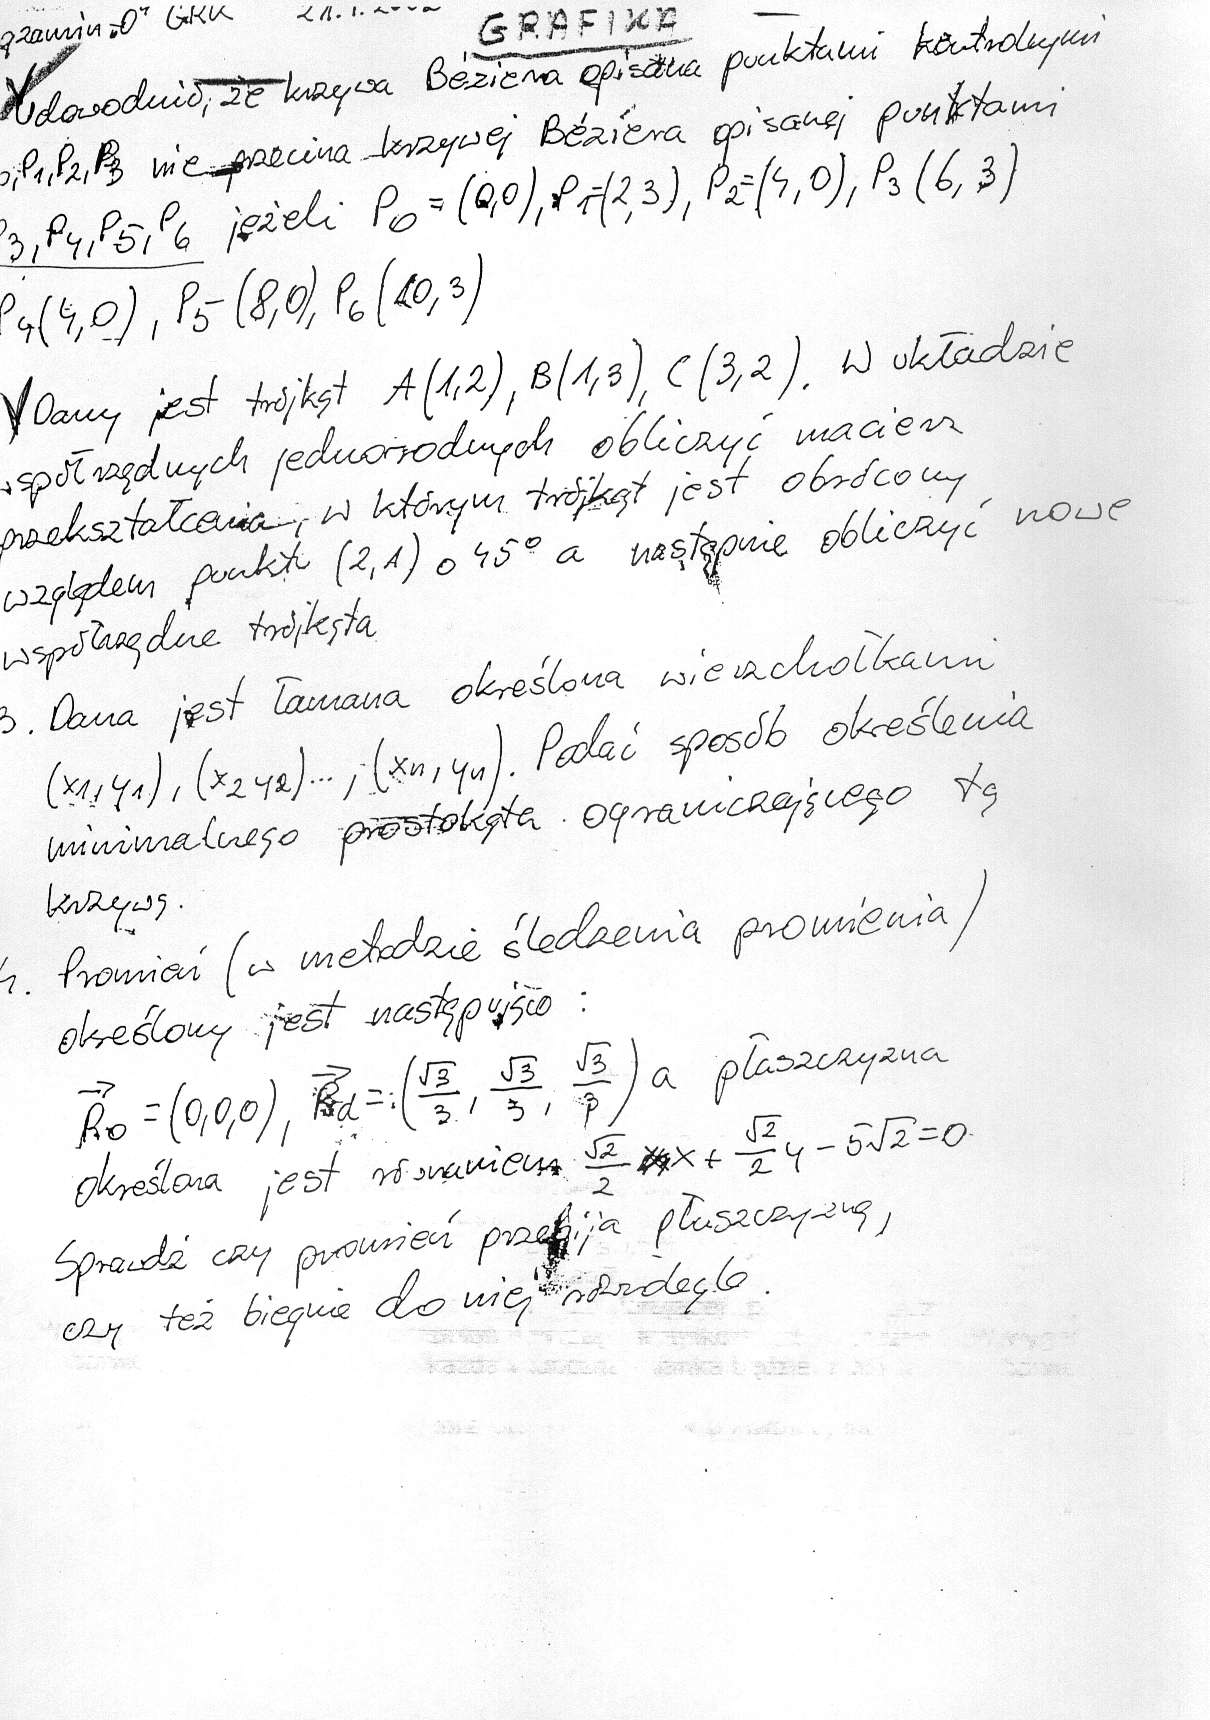 GRAFIKA
Egzamin "0" GKK 21.1.2002
Udowodnić, że krzywa Béziera opisana punktami kontrolnymi
P1, P2, P3 nie przecina krzywej Béziera opisanej punktami
P3, P4, P5, P6 jeżeli P0 = (0,0), P1=(2,3), P2=(4,0), P3 (6,3)
P4(4,0), P5-(8,0), P6(10,3)
Dany jest trójkąt A(1,2), B(1,3), C(3,2). W układzie
współrzędnych jednorodnych obliczyć macierz
przekształcenia, w którym trójkąt jest obrócony
względem punktu (2,1) o 45° a następnie obliczyć nowe
współrzędne trójkąta
3. Dana jest łamana określona wierzchołkami
(x1,y1), (x2 y2)..., (xn, yn). Podać sposób określenia
minimalnego prostokąta ograniczającego tą
krzywą.
4. Promień (w metodzie śledzenia promienia)
określony jest następująco :
R0 = (0,0,0), Rd = (√3/3, √3/3, √3/3) a płaszczyzna
określona jest równaniem √2/2 x + √2/2 y - 5√2 = 0
Sprawdź czy promień przebija płaszczyznę,
czy też biegnie do niej równolegle.